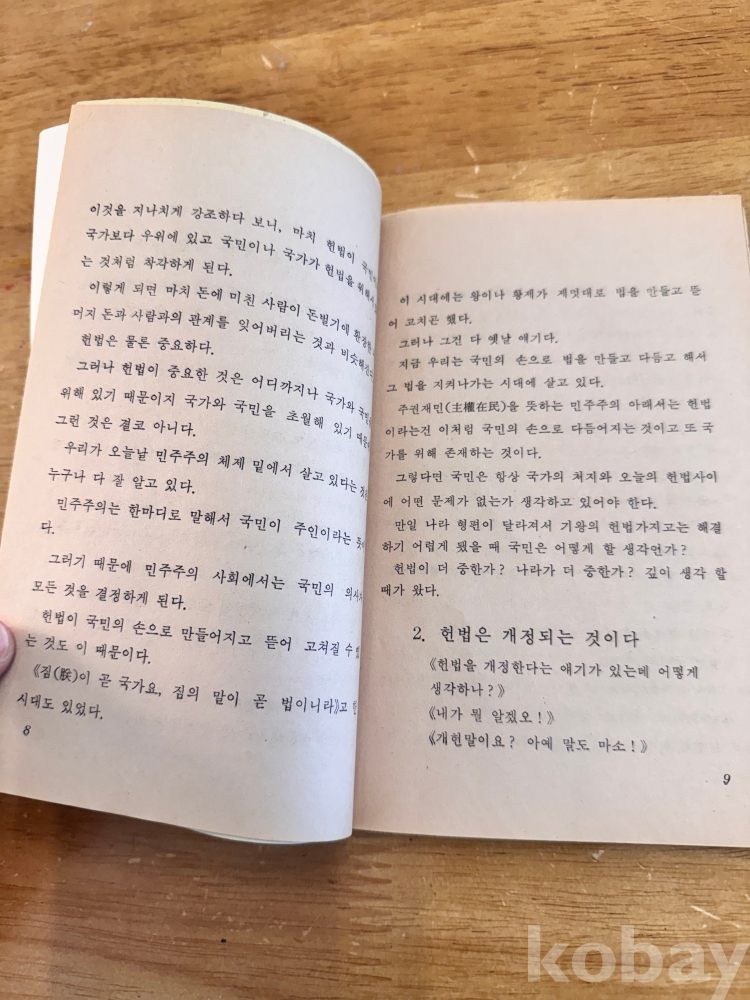 이것을 지나치게 강조하다 보니, 마치 헌법이
국가보다 우위에 있고 국민이나 국가가 헌법을 위해서
는 것처럼 착각하게 된다.
이렇게 되면 마치 돈에 미친 사람이 돈벌기에
머지 돈과 사람과의 관계를 잊어버리는 것과 비슷해진다
헌법은 물론 중요하다.
그러나 헌법이 중요한 것은 어디까지나 국가와
위해 있기 때문이지 국가와 국민을 초월해 있기
그런 것은 결코 아니다.
우리가 오늘날 민주주의 체제 밑에서 살고 있다는
누구나 다 잘 알고 있다.
민주주의는 한마디로 말해서 국민이 주인이라는
다.
그러기 때문에 민주주의 사회에서는 국민의
모든 것을 결정하게 된다.
헌법이 국민의 손으로 만들어지고 뜯어 고쳐질 수
는 것도 이 때문이다.
《짐(朕)이 곧 국가요, 짐의 말이 곧 법이니라》고
시대도 있었다.
8
이 시대에는 왕이나 황제가 제멋대로 법을 만들고 뜯
어 고치곤 했다.
그러나 그건 다 옛날 얘기다.
지금 우리는 국민의 손으로 법을 만들고 다듬고 해서
그 법을 지켜나가는 시대에 살고 있다.
주권재민(主權在民)을 뜻하는 민주주의 아래서는 헌법
이라는건 이처럼 국민의 손으로 다듬어지는 것이고 또 국
가를 위해 존재하는 것이다.
그렇다면 국민은 항상 국가의 처지와 오늘의 헌법사이
에 어떤 문제가 없는가 생각하고 있어야 한다.
만일 나라 형편이 달라져서 기왕의 헌법가지고는 해결
하기 어렵게 됐을 때 국민은 어떻게 할 생각언가?
헌법이 더 중한가? 나라가 더 중한가? 깊이 생각 할
때가 왔다.
2. 헌법은 개정되는 것이다
《헌법을 개정한다는 얘기가 있는데 어떻게
생각하나?》
《내가 뭘 알겠오!》
《개헌말이요? 아예 말도 마소!》
9
kobay